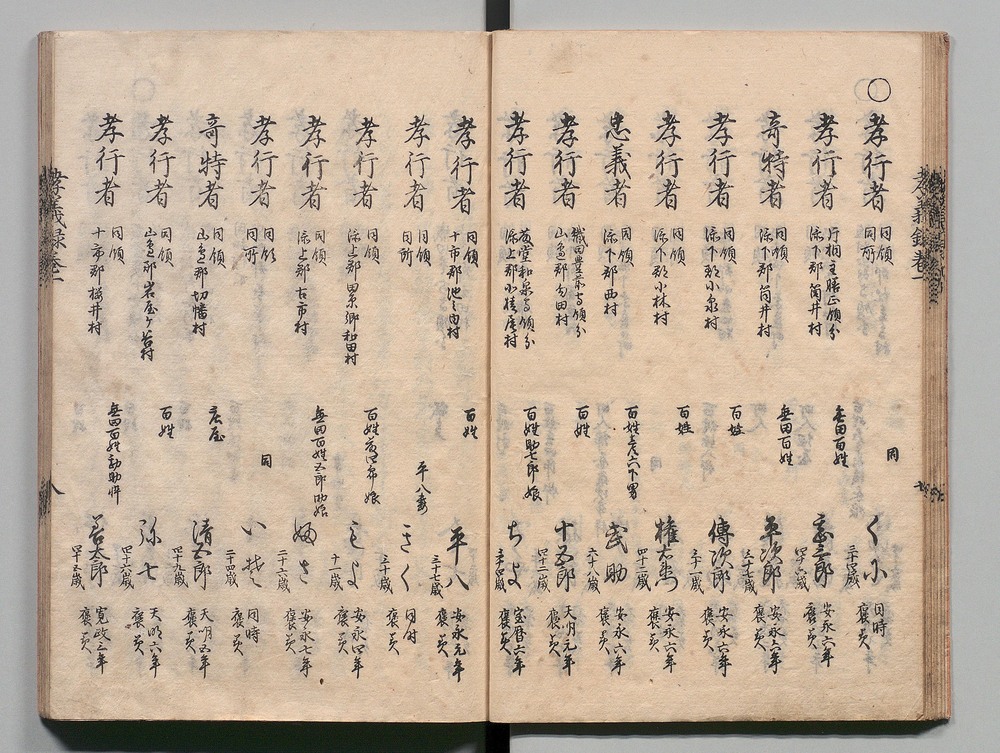 孝行者 同領 同所 同 くに 二十四歳 同時 褒美
孝行者 片桐主膳正領分 添下郡筒井村 無田百姓 四十六歳 安永六年 褒美
奇特者 同領 添下郡筒井村 無田百姓 平次郎 三十七歳 安永六年 褒美
孝行者 同領 添下郡小泉村 百姓 傳次郎 三十一歳 安永六年 褒美
孝行者 同領 添下郡小林村 百姓 四十二歳 安永六年 褒美
忠義者 同領 添下郡西村 百姓 下男 武助 六十八歳 安永六年 褒美
孝行者 織田豊前守領分 山邊郡勾田村 百姓 十五郎 四十二歳 天明元年 褒美
孝行者 藤堂和泉守領分 添上郡 村 百姓助七郎娘 ちよ 二十四歳 宝暦六年 褒美
孝行者 同領 十市郡池之内村 百姓 平八 三十七歳 安永元年 褒美
孝行者 同領 同所 平八妻 きく 三十歳 同時 褒美
孝行者 同領 添上郡田原郷和田村 百姓 娘 十一歳 安永四年 褒美
孝行者 同領 添上郡古市村 無田百姓五郎助 二十二歳 安永七年 褒美
孝行者 同領 同所 同 二十四歳 同時 褒美
奇特者 同領 山邊郡切幡村 庄屋 清五郎 四十九歳 天明五年 褒美
孝行者 同領 山邊郡岩屋ヶ谷村 百姓 弥七 四十六歳 天明六年 褒美
孝行者 同領 十市郡桜井村 無田百姓勘助忰 善太郎 四十五歳 寛政三年 褒美
孝義録巻一
八